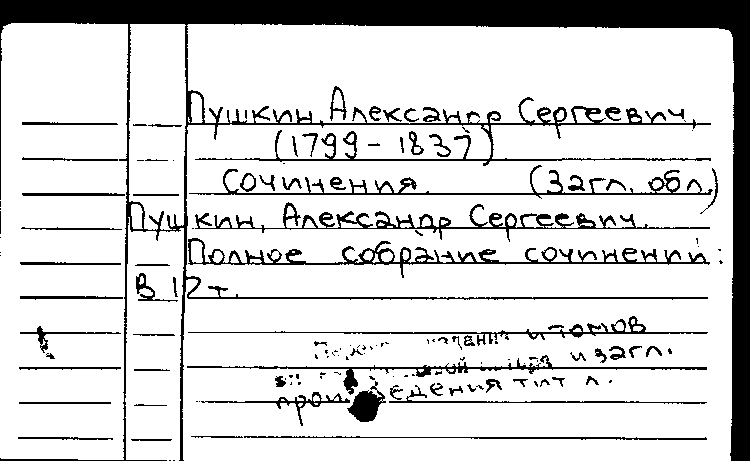 Пушкин, Александр Сергеевич,
(1799-1837)
Сочинения. (Загл. обл.)
Пушкин, Александр Сергеевич.
Полное собрание сочинений:
В 12 т.
издания и томов
и загл.
произведения тит л.